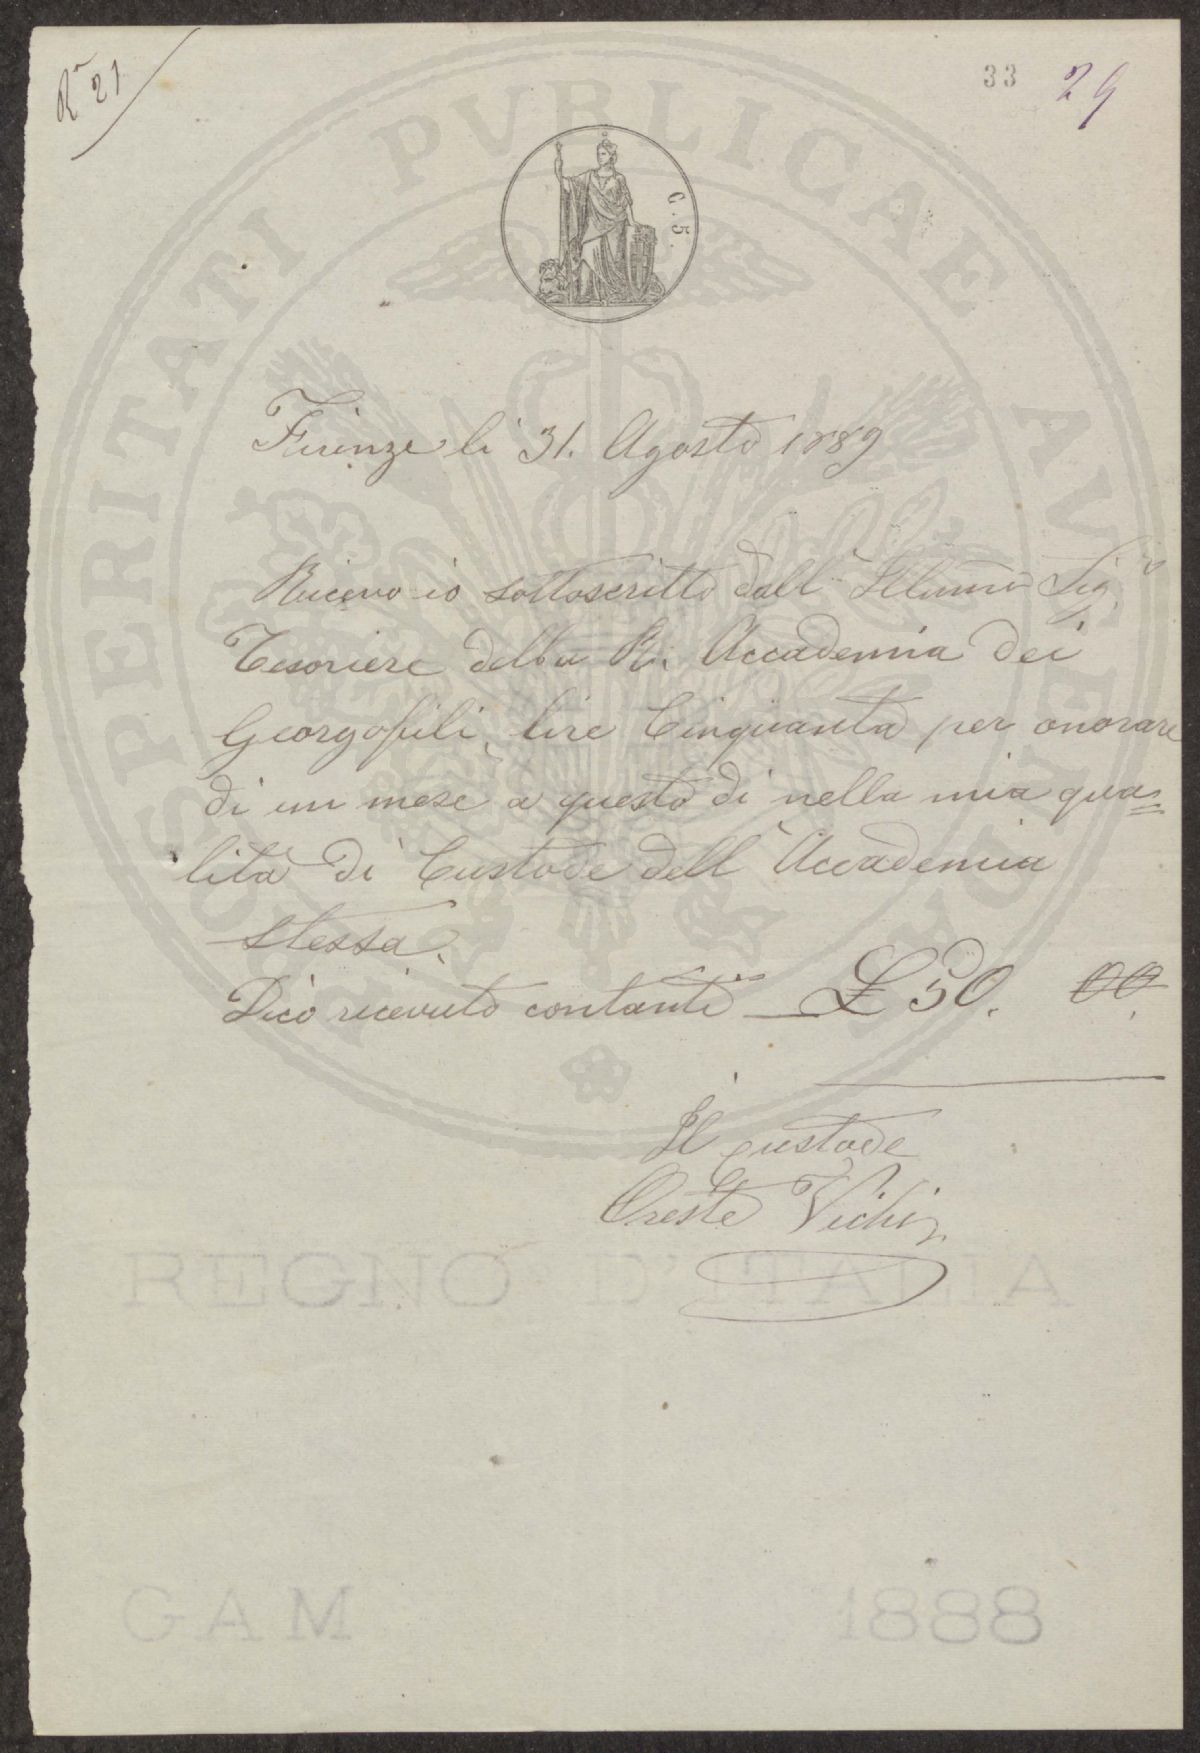 Rª 21
33 29
PROSPERITATI PVBLICAE AVGENDAE
C. 5.
Firenze li 31. Agosto 1889
Ricevo io sottoscritto dall' Illumo Sigr
Tesoriere della R. Accademia dei
Georgofili, lire Cinquanta per onorare
di un mese a questo dì nella mia qua=
lità di Custode dell' Accademia
stessa.
Dico ricevuto contanti £ 50. 00.
Il custode
Oreste Vichi
REGNO D'ITALIA
GAM 1888